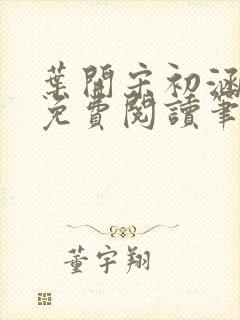 葉開宋初涵
免費閱讀筆
董宇翔